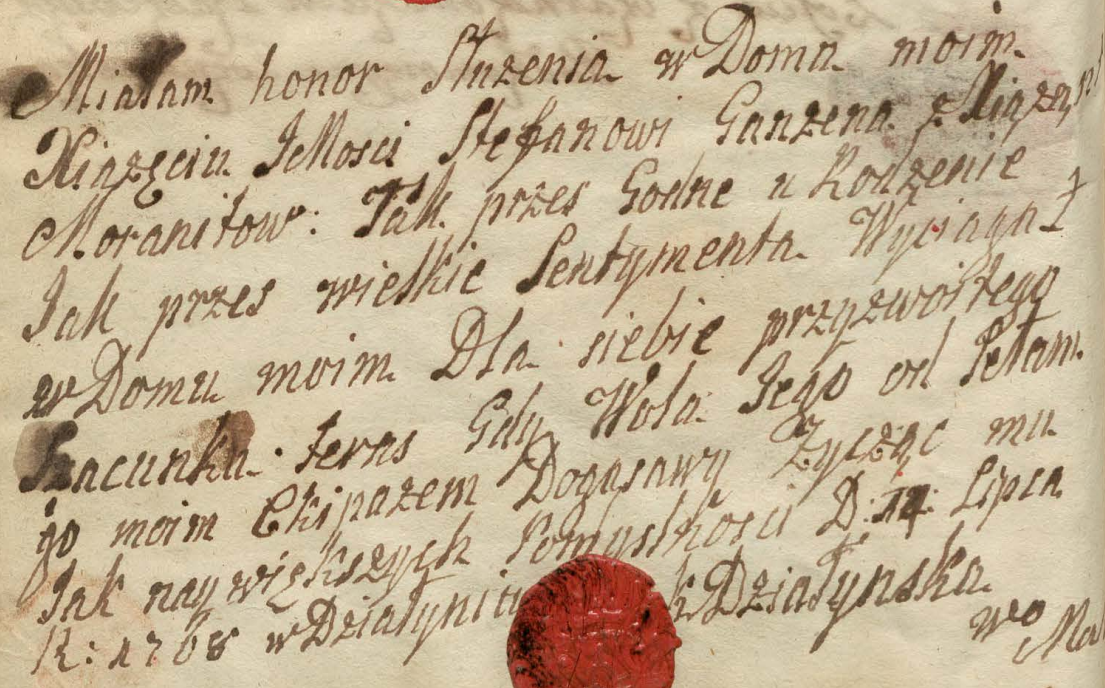 Miałam honor Słuzenia w Domu moim
Xiązęciu JeMosci Stefanowi Ganzena z Xiązą
Moranitow: Tak przes Godne u Rodzenie
Jak przes wielkie Sentymenta Wyciągał
w Domu moim Dla siebie przyzwoitego
Szacunku. teras Gdy Wola Jego od Sełam
go moim Ekipazem Dogasawy Zycząc mu
Jak naywiększych Pomyslnosci D: 14: Lipca
R: 1768 w Działyniu Działynska